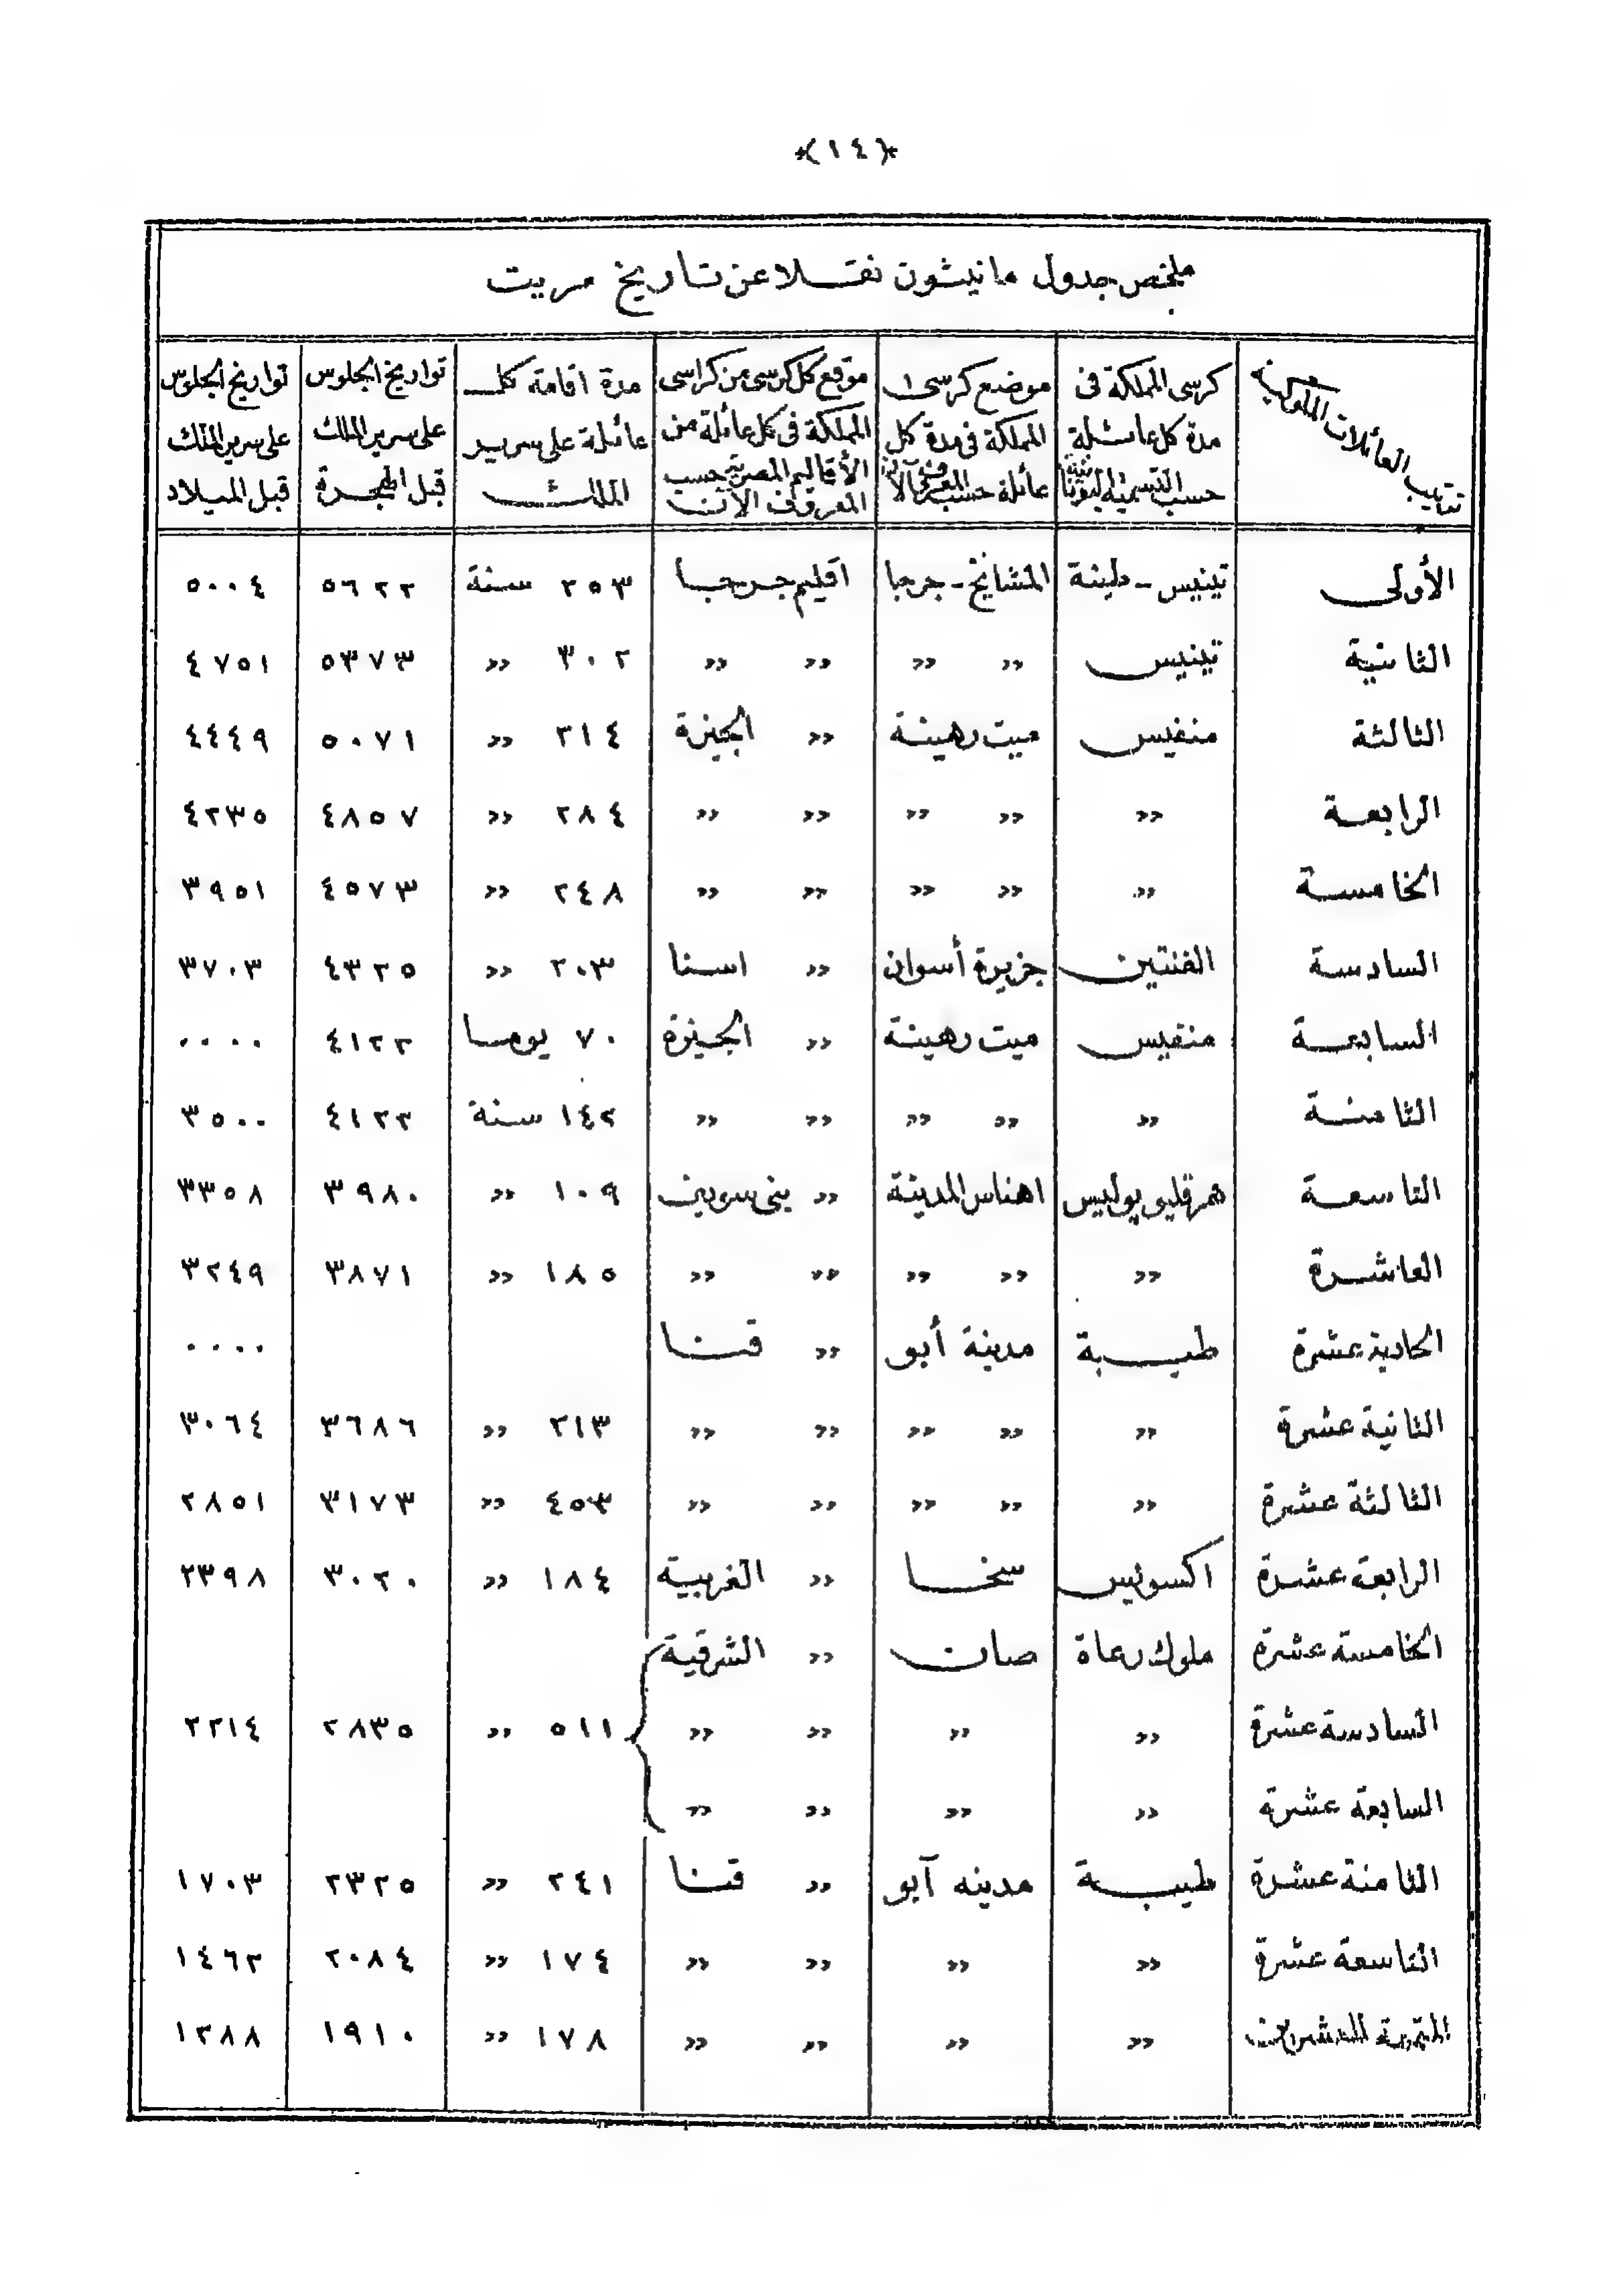 ﴿١٤﴾
ملخص جدول مانيثون نقلا عن تاريخ مريت
ترتيب العائلات الملوكية | كرسى المملكة فى مدة كل عائلة حسب التسمية اليونانية | موضع كرسى المملكة فى مدة كل عائلة حسب المعروف الآن | موقع كل كرسى من كراسى المملكة فى كل عائلة من الأقاليم المصرية حسب المعروف الآن | مدة اقامة كل عائلة على سرير الملك | تواريخ الجلوس على سرير الملك قبل الهجرة | تواريخ الجلوس على سرير الملك قبل الميلاد
الأولى | تينيس - طينة | المشايخ - جرجا | اقليم جرجا | ٢٥٣ سنة | ٥٦٢٢ | ٥٠٠٤
الثانية | تينيس | » » | » » | ٣٠٢ » | ٥٣٧٣ | ٤٧٥١
الثالثة | منفيس | ميت رهينة | » الجيزة | ٢١٤ » | ٥٠٧١ | ٤٤٤٩
الرابعة | » | » » | » » | ٢٨٤ » | ٤٨٥٧ | ٤٢٣٥
الخامسة | » | » » | » » | ٢٤٨ » | ٤٥٧٣ | ٣٩٥١
السادسة | الفنتين | جزيرة أسوان | » اسنا | ٢٠٣ » | ٤٣٢٥ | ٣٧٠٣
السابعة | منفيس | ميت رهينة | » الجيزة | ٧٠ يوما | ٤١٢٢ | ٠٠٠٠
الثامنة | » | » » | » » | ١٤٢ سنة | ٤١٢٢ | ٣٥٠٠
التاسعة | هرقليوبوليس | اهناس المدينة | » بنى سويف | ١٠٩ » | ٣٩٨٠ | ٣٣٥٨
العاشرة | » | » » | » » | ١٨٥ » | ٣٨٧١ | ٣٢٤٩
الحادية عشرة | طيبة | مدينة أبو | » قنا | | | ٠٠٠٠
الثانية عشرة | » | » » | » » | ٢١٣ » | ٣٦٨٦ | ٣٠٦٤
الثالثة عشرة | » | » » | » » | ٤٥٣ » | ٣١٧٣ | ٢٨٥١
الرابعة عشرة | اكسويس | سخا | » الغربية | ١٨٤ » | ٣٠٢٠ | ٢٣٩٨
الخامسة عشرة | ملوك رعاة | صان | » الشرقية
السادسة عشرة | » | » | » » | ٥١١ » | ٢٨٣٥ | ٢٢١٤
السابعة عشرة | » | » | » »
الثامنة عشرة | طيبة | مدينه آبو | » قنا | ٢٤١ » | ٢٣٢٥ | ١٧٠٣
التاسعة عشرة | » | » | » » | ١٧٤ » | ٢٠٨٤ | ١٤٦٢
المتممة للعشرين | » | » | » » | ١٧٨ » | ١٩١٠ | ١٢٨٨